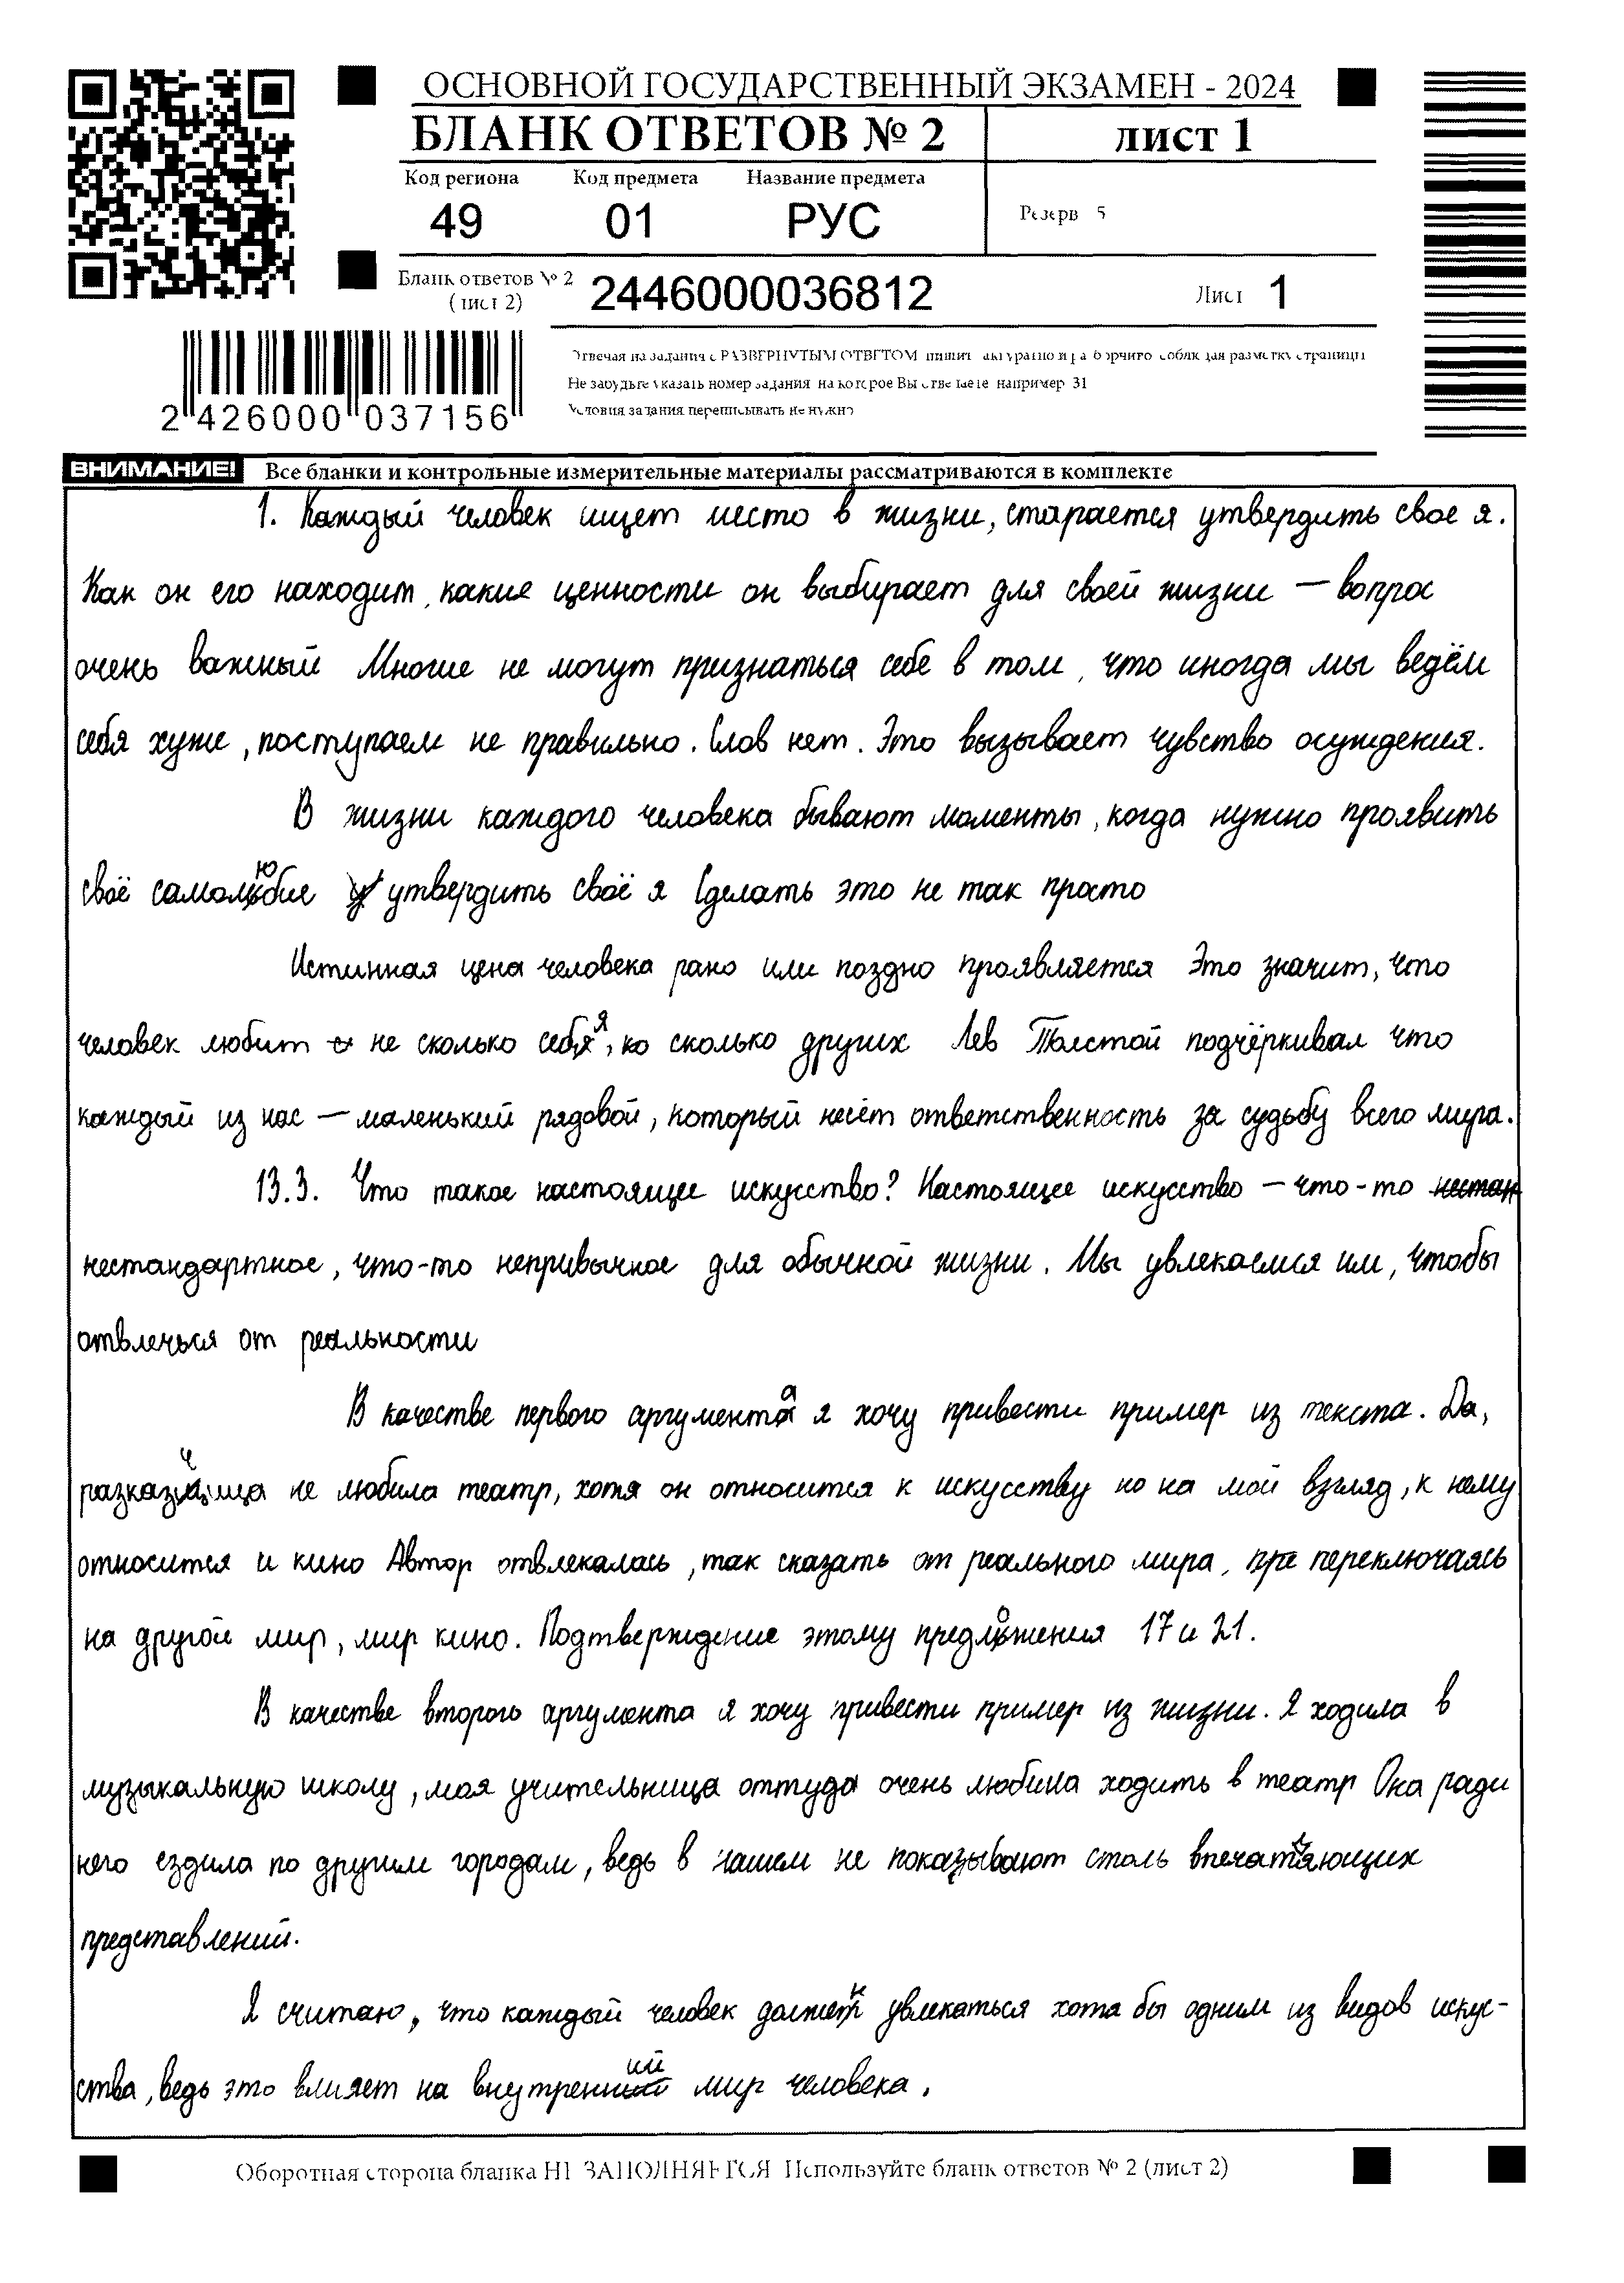 ОСНОВНОЙ ГОСУДАРСТВЕННЫЙ ЭКЗАМЕН - 2024
БЛАНК ОТВЕТОВ № 2
лист 1
Код региона Код предмета Название предмета
49 01 РУС
Резерв 5
Бланк ответов № 2
(лист 2)
2446000036812
Лист 1
2 426000 037156
Отвечая на задания с РАЗВЕРНУТЫМ ОТВЕТОМ пишите аккуратно и разборчиво соблюдая разметку страницы
Не забудьте указать номер задания на которое Вы отвечаете например 31
Условия задания переписывать не нужно
ВНИМАНИЕ! Все бланки и контрольные измерительные материалы рассматриваются в комплекте
1. Каждый человек ищет место в жизни, старается утвердить свое я.
Как он его находит, какие ценности он выбирает для своей жизни — вопрос
очень важный Многие не могут признаться себе в том, что иногда мы ведём
себя хуже, поступаем не правильно. Слов нет. Это вызывает чувство осуждения.
В жизни каждого человека бывают моменты, когда нужно проявить
своё самолюбие утвердить своё я Сделать это не так просто
Истинная цена человека рано или поздно проявляется Это значит, что
человек любит не сколько себя, но сколько других Лев Толстой подчёркивал что
каждый из нас — маленький рядовой, который несёт ответственность за судьбу всего мира.
13.3. Что такое настоящее искусство? Настоящее искусство — что-то нестан
нестандартное, что-то непривычное для обычной жизни. Мы увлекаемся им, чтобы
отвлечься от реальности
В качестве первого аргумента я хочу привести пример из текста. Да,
разказчица не любила театр, хотя он относится к искусству но на мой взгляд, к нему
относится и кино Автор отвлекалась, так сказать от реального мира, пре переключаясь
на другой мир, мир кино. Подтверждение этому предложения 17 и 21.
В качестве второго аргумента я хочу привести пример из жизни. Я ходила в
музыкальную школу, моя учительница оттуда очень любила ходить в театр Она ради
него ездила по другим городам, ведь в нашем не показывают столь впечатляющих
представлений.
Я считаю, что каждый человек должен увлекаться хотя бы одним из видов искус-
ства, ведь это влияет на внутренний мир человека.
Оборотная сторона бланка НЕ ЗАПОЛНЯЕТСЯ Используйте бланк ответов № 2 (лист 2)